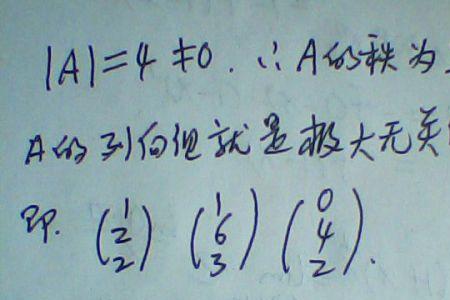 |A|=4≠0. ∴A的秩为
A的列向组就是极大无关
即. (1 2 2) (1 6 3) (0 4 2).